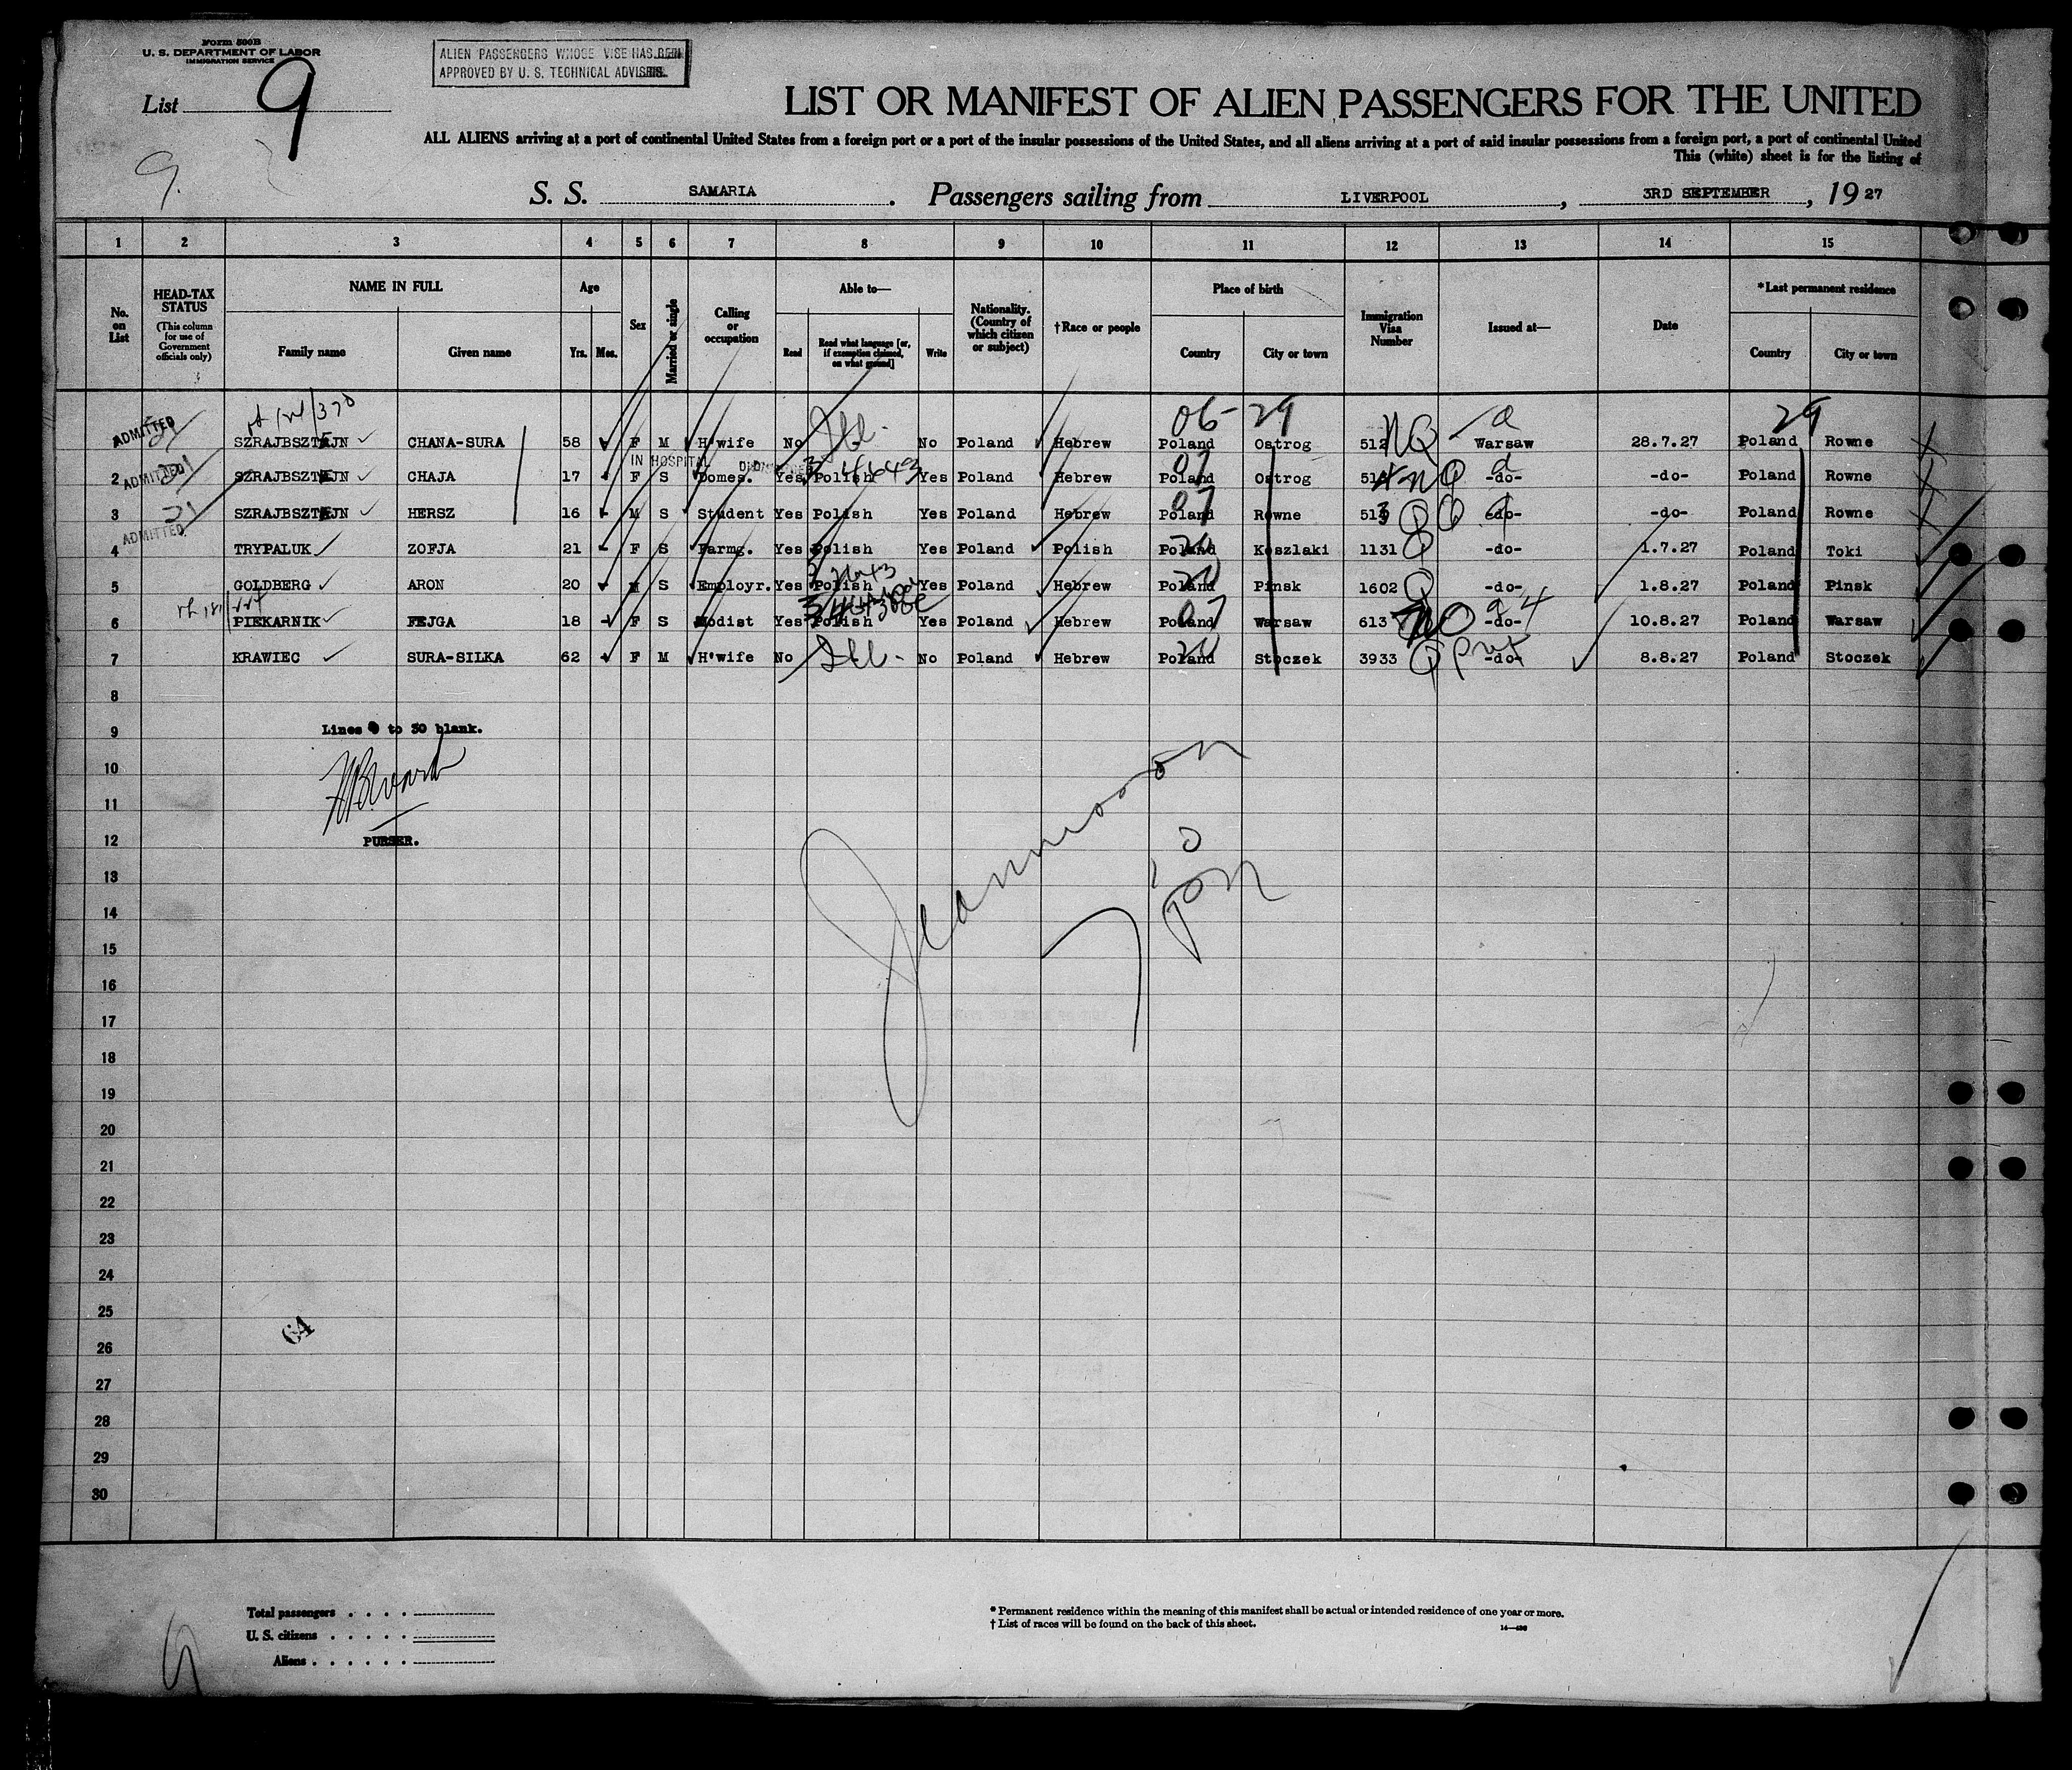 Form 500B
U. S. DEPARTMENT OF LABOR
IMMIGRATION SERVICE
ALIEN PASSENGERS WHOSE VISE HAS BEEN
APPROVED BY U. S. TECHNICAL ADVISERS.
List 9
9.
LIST OR MANIFEST OF ALIEN PASSENGERS FOR THE UNITED
ALL ALIENS arriving at a port of continental United States from a foreign port or a port of the insular possessions of the United States, and all aliens arriving at a port of said insular possessions from a foreign port, a port of continental United
This (white) sheet is for the listing of
S. S. SAMARIA. Passengers sailing from LIVERPOOL, 3RD SEPTEMBER, 1927
1 2 3 4 5 6 7 8 9 10 11 12 13 14 15
No. on List HEAD-TAX STATUS (This column for use of Government officials only) NAME IN FULL Family name Given name Age Yrs. Mos. Sex Married or single Calling or occupation Able to— Read Read what language [or, if exemption claimed, on what ground] Write Nationality. (Country of which citizen or subject) †Race or people Place of birth Country City or town Immigration Visa Number Issued at— Date *Last permanent residence Country City or town
06-29 29
1 ADMITTED SZRAJBSZTEJN CHANA-SURA 58 F M H'wife No Ill. No Poland Hebrew Poland Ostrog 512 NQ Warsaw 28.7.27 Poland Rowne
IN HOSPITAL DISCHARGED
2 ADMITTED SZRAJBSZTEJN CHAJA 17 F S Domes. Yes Polish Yes Poland Hebrew Poland Ostrog 514 NQ -do- -do- Poland Rowne
3 ADMITTED SZRAJBSZTEJN HERSZ 16 M S Student Yes Polish Yes Poland Hebrew Poland Rowne 513 Q -do- -do- Poland Rowne
4 TRYPALUK ZOFJA 21 F S Farmg. Yes Polish Yes Poland Polish Poland Koszlaki 1131 Q -do- 1.7.27 Poland Toki
5 GOLDBERG ARON 20 M S Employr. Yes Polish Yes Poland Hebrew Poland Pinsk 1602 Q -do- 1.8.27 Poland Pinsk
6 PIEKARNIK FEJGA 18 F S Modist Yes Polish Yes Poland Hebrew Poland Warsaw 613 -do- 10.8.27 Poland Warsaw
7 KRAWIEC SURA-SILKA 62 F M H'wife No Ill. No Poland Hebrew Poland Stoczek 3933 Q -do- 8.8.27 Poland Stoczek
8
9 Lines to 30 blank.
10
11
12 PURSER.
13
14
15
16
17
18
19
20
21
22
23
24
25
64
26
27
28
29
30
Total passengers
U. S. citizens
Aliens
* Permanent residence within the meaning of this manifest shall be actual or intended residence of one year or more.
† List of races will be found on the back of this sheet.